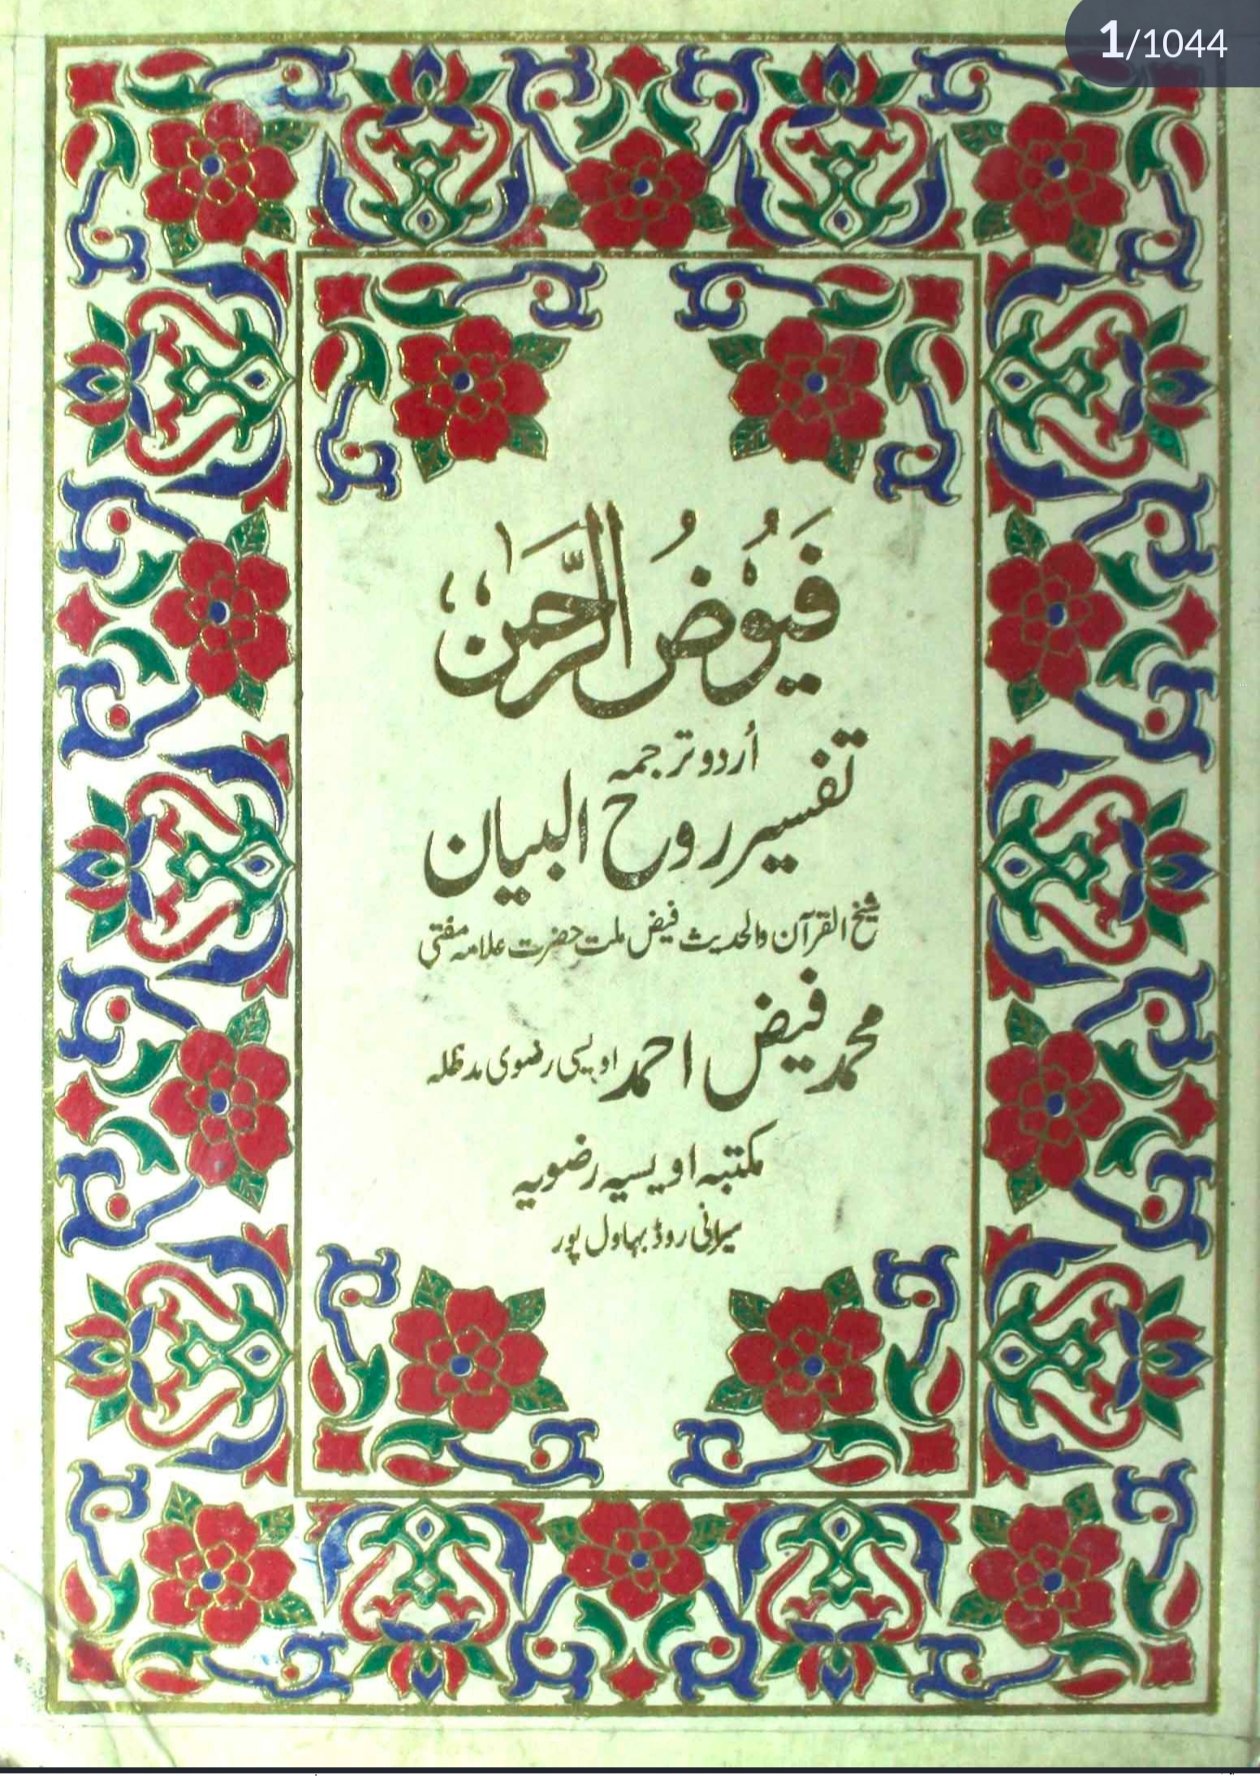 1/1044
فَیُوْضُ الرَّحمٰن
اُردو ترجمہ
تفسیر روح البیان
شیخ القرآن والحدیث فیض ملت حضرت علامہ مفتی
محمد فیض احمد اویسی رضوی مدظلہ
مکتبہ اویسیہ رضویہ
سیرانی روڈ بہاول پور